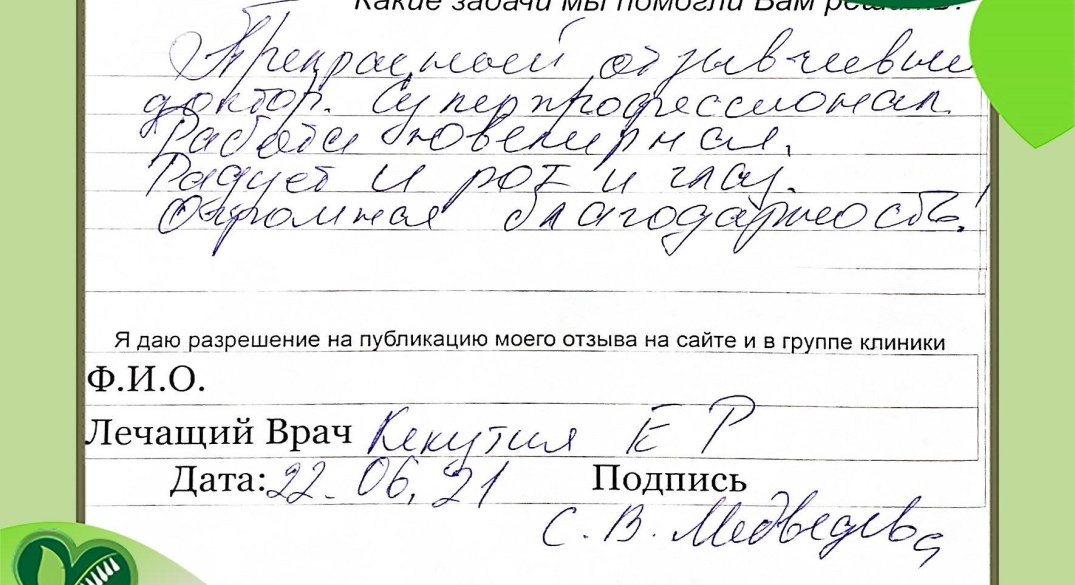 Какие задачи мы помогли Вам решить?
Прекрасный отзывчивый
доктор. Суперпрофессионал.
Работа ювелирная.
Радует и рот и глаз.
Огромная благодарность!
Я даю разрешение на публикацию моего отзыва на сайте и в группе клиники
Ф.И.О.
Лечащий Врач Кекутия Е Р
Дата: 22.06.21 Подпись
С. В. Медведева